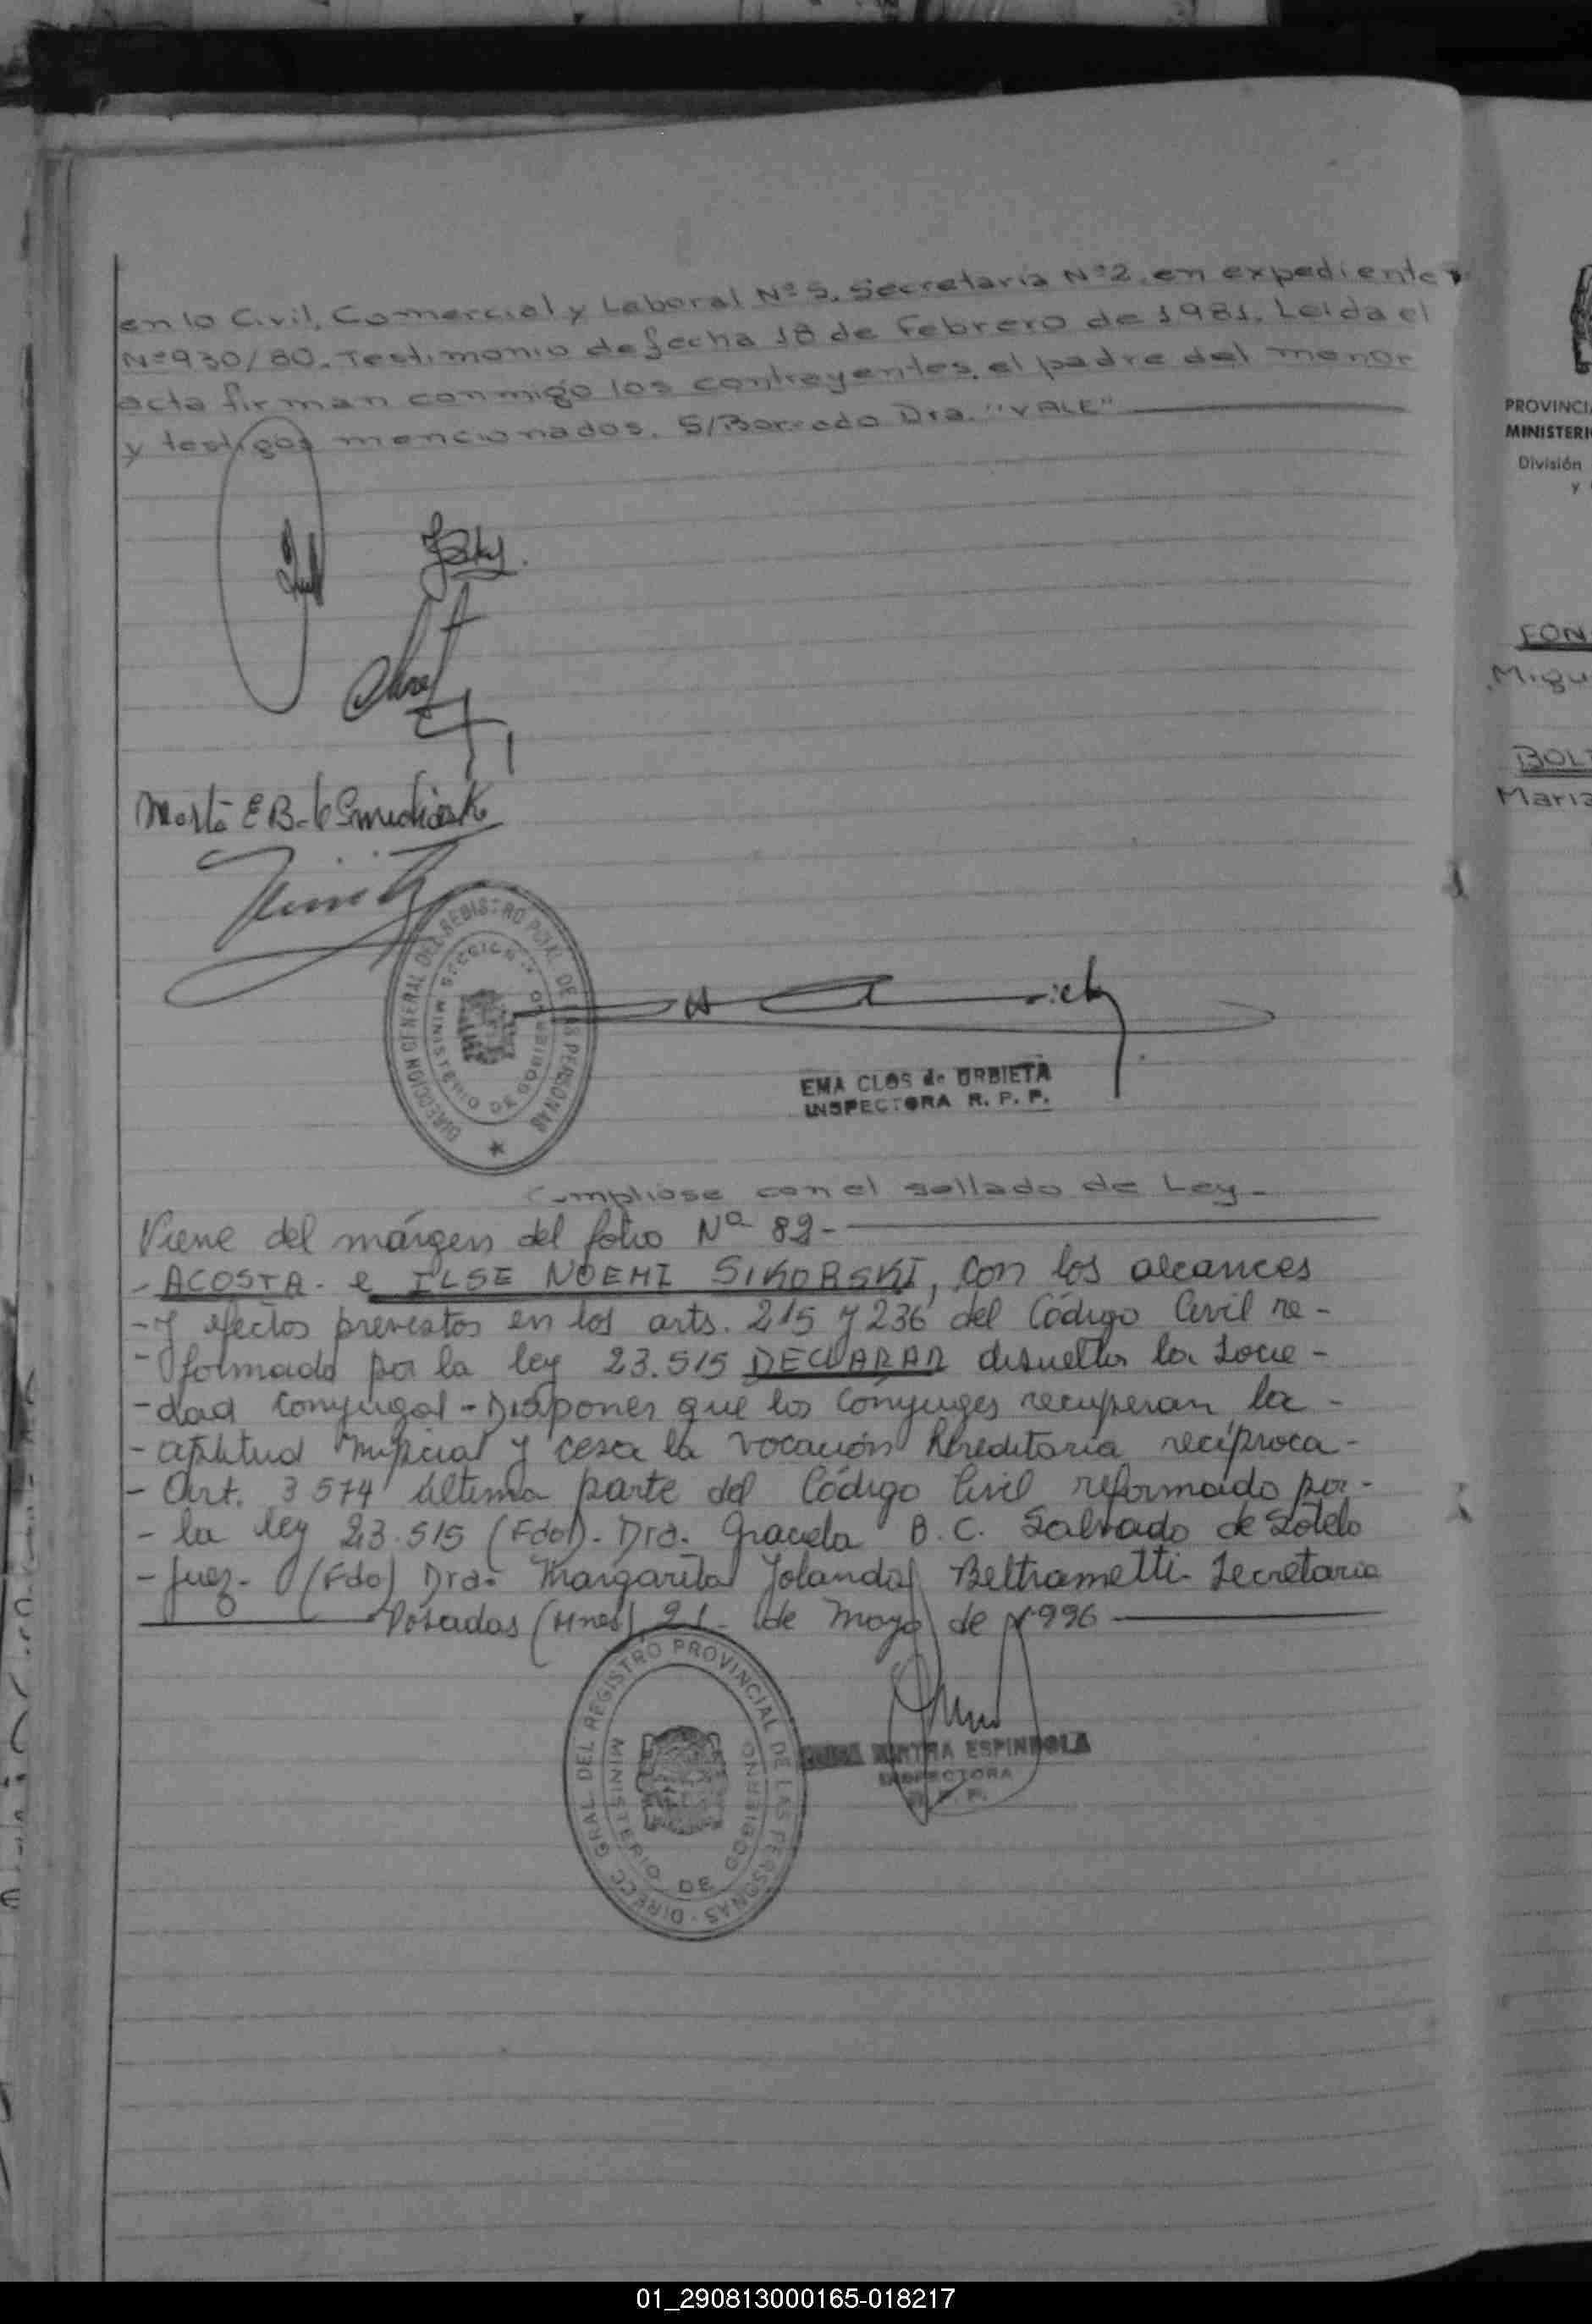 en lo Civil, Comercial y Laboral Nº 5. Secretaría Nº 2, en expediente
Nº 930/80. Testimonio de fecha 18 de Febrero de 1981. Leída el
acta firman conmigo los contrayentes, el padre del menor
y testigos mencionados. S/Borrado Dra. "VALE"
Marta E B. de
DIRECCION GENERAL DEL REGISTRO PCIAL. DE LAS PERSONAS
MINISTERIO DE GOBIERNO
EMA CLOS de URBIETA
INSPECTORA R. P. P.
Cumpliose con el sellado de Ley-
Viene del márgen del folio Nº 82-
- ACOSTA - e ILSE NOEMI SIKORSKI, con los alcances
- y efectos previstos en los arts. 215 y 236 del Código Civil re-
- formado por la ley 23.515 DECLARAR disuelta la Socie-
- dad Conyugal - Disponer que los Cónyuges recuperan la -
- aptitud nupcial y cesa la vocación hereditaria recíproca-
- Art. 3574 última parte del Código Civil reformado por-
- la ley 23.515 (Fdo). Dra. Graciela B. C. Salvado de Sotelo
- Juez- (Fdo) Dra. Margarita Yolanda Beltrametti- Secretaria
Posadas (Mnes) 21 - de Mayo de 1996
DIRECC. GRAL. DEL REGISTRO PROVINCIAL DE LAS PERSONAS
MINISTERIO DE GOBIERNO
MIRTHA ESPINDOLA
INSPECTORA
R. P. P.
PROVINCI
MINISTERI
División
y
FON
Migu
BOL
Maria
01_290813000165-018217